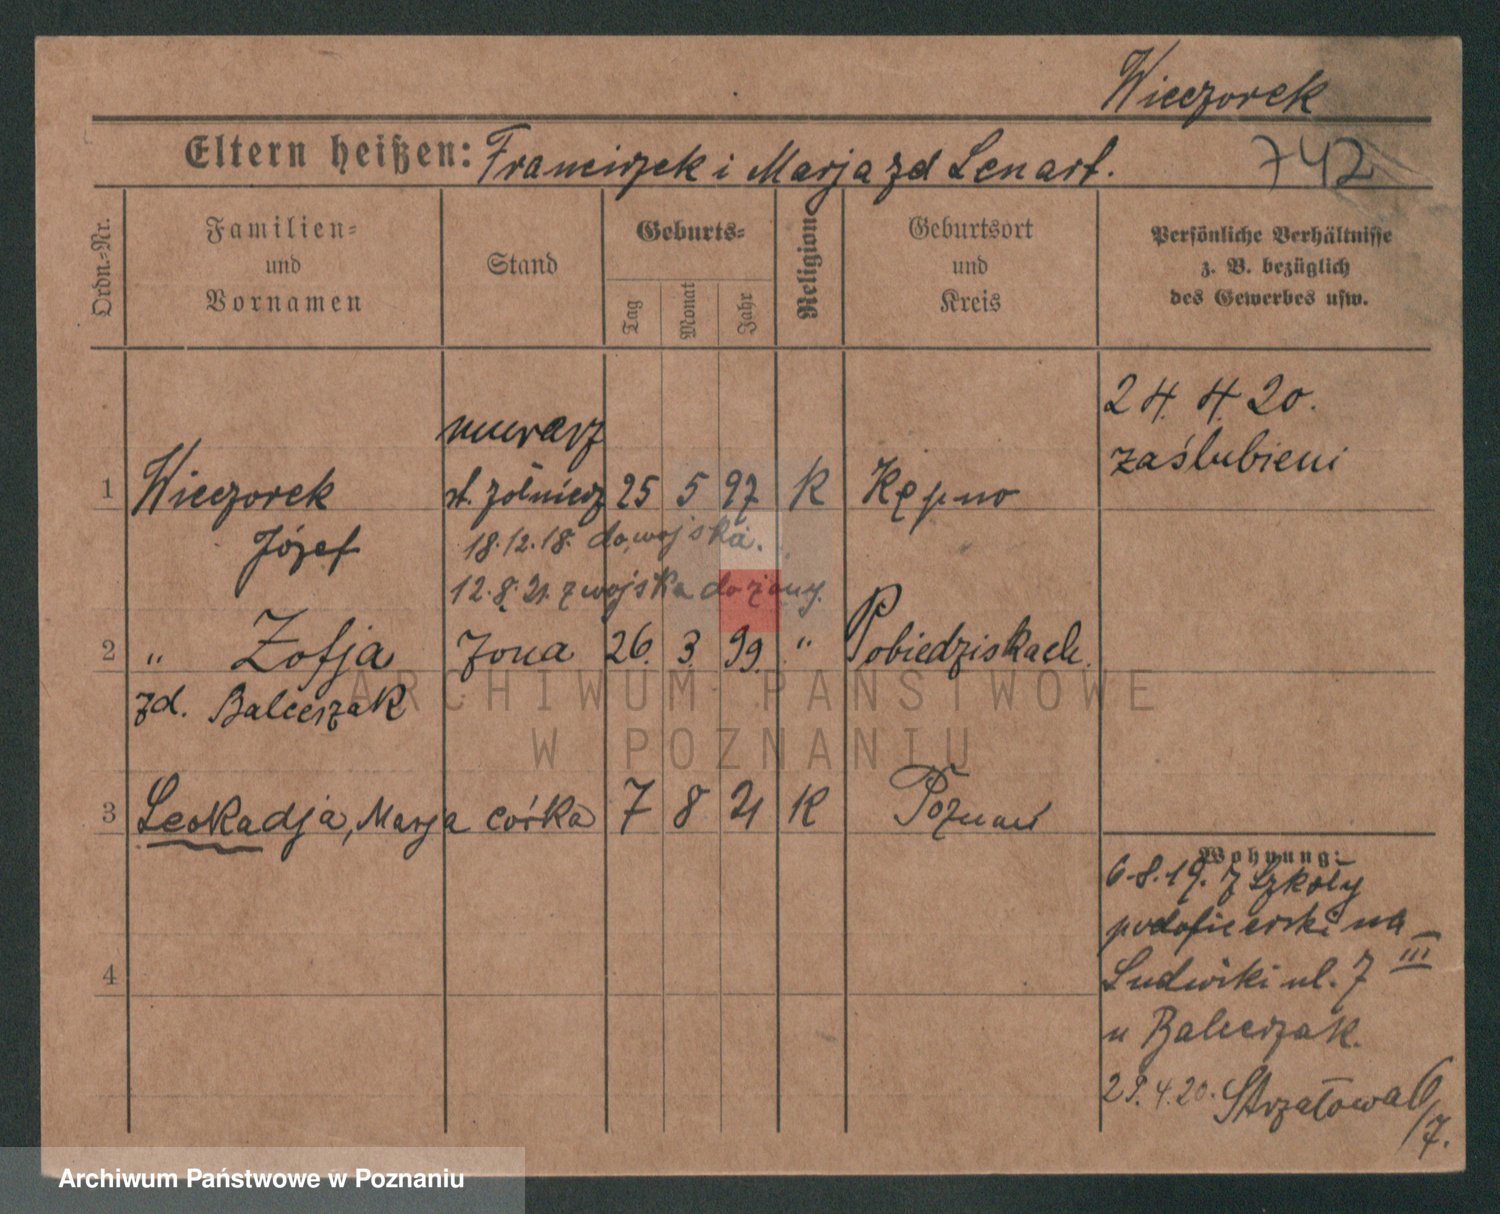 Wieczorek
Eltern heißen: Franciszek i Marja zd Lenart.
742
Ordn.-Nr.
Familien-
und
Vornamen
Stand
Geburts-
Tag
Monat
Jahr
Religion
Geburtsort
und
Kreis
Persönliche Verhältnisse
z. B. bezüglich
des Gewerbes usw.
24. 4. 20.
zaślubieni
murarz
1 Wieczorek st. żołnierz 25 5 97 K Kępno
Józef 18.12.18. do wojska.
12.8.21. z wojska do żony.
2 " Zofja żona 26. 3. 99. " Pobiedziskach.
zd. Balcerzak
3 Leokadja, Marja córka 7 8 21 K Poznań
Wohnung:
6.8.19. z Szkoły
podoficerski na
Ludwiki ul. 7 III
u Balcerzak.
4
29.4.20. Strzałowa 6/7.
ARCHIWUM PAŃSTWOWE
W POZNANIU
Archiwum Państwowe w Poznaniu